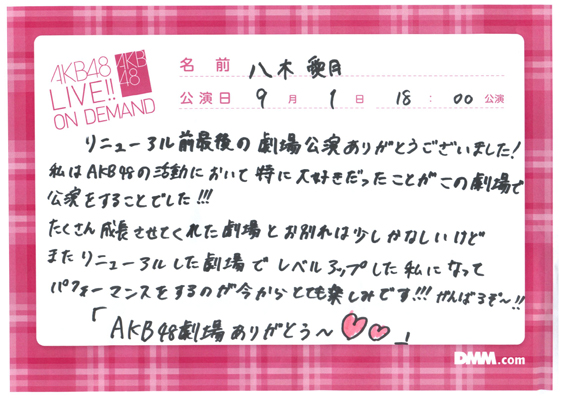 AKB48
LIVE!!
ON DEMAND
AKB
48
名前 八木愛月
公演日 9月1日 18:00公演
リニューアル前最後の劇場公演ありがとうございました!
私はAKB48の活動において特に大好きだったことがこの劇場で
公演をすることでした!!!
たくさん成長させてくれた劇場とお別れは少しかなしいけど
またリニューアルした劇場でレベルアップした私になって
パフォーマンスをするのが今からとても楽しみです!!!がんばるぞ〜!!
「AKB48劇場ありがとう〜♡♡」
DMM.com